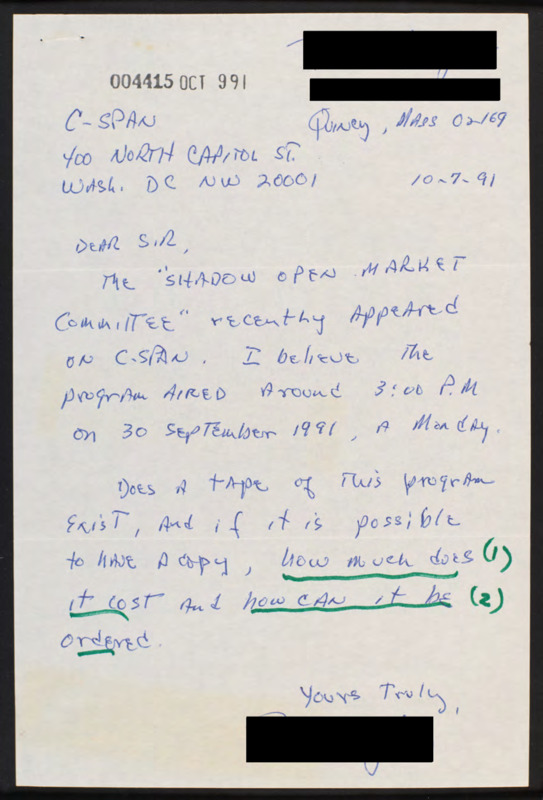 004415 OCT 991
C-SPAN
Quincy, MASS 02169
400 NORTH CAPITOL ST.
WASH. DC NW 20001
10-7-91
DEAR SIR,
THE "SHADOW OPEN MARKET
COMMITTEE" recently APPEARED
ON C-SPAN. I believe The
program AIRED Around 3:00 P.M
on 30 SEPTEMber 1991, A Monday.
DOES A TAPE of This program
EXIST, And if it is possible
to HAVE A copy, how much does (1)
it cost and how CAN it be (2)
ordered.
Yours Truly,